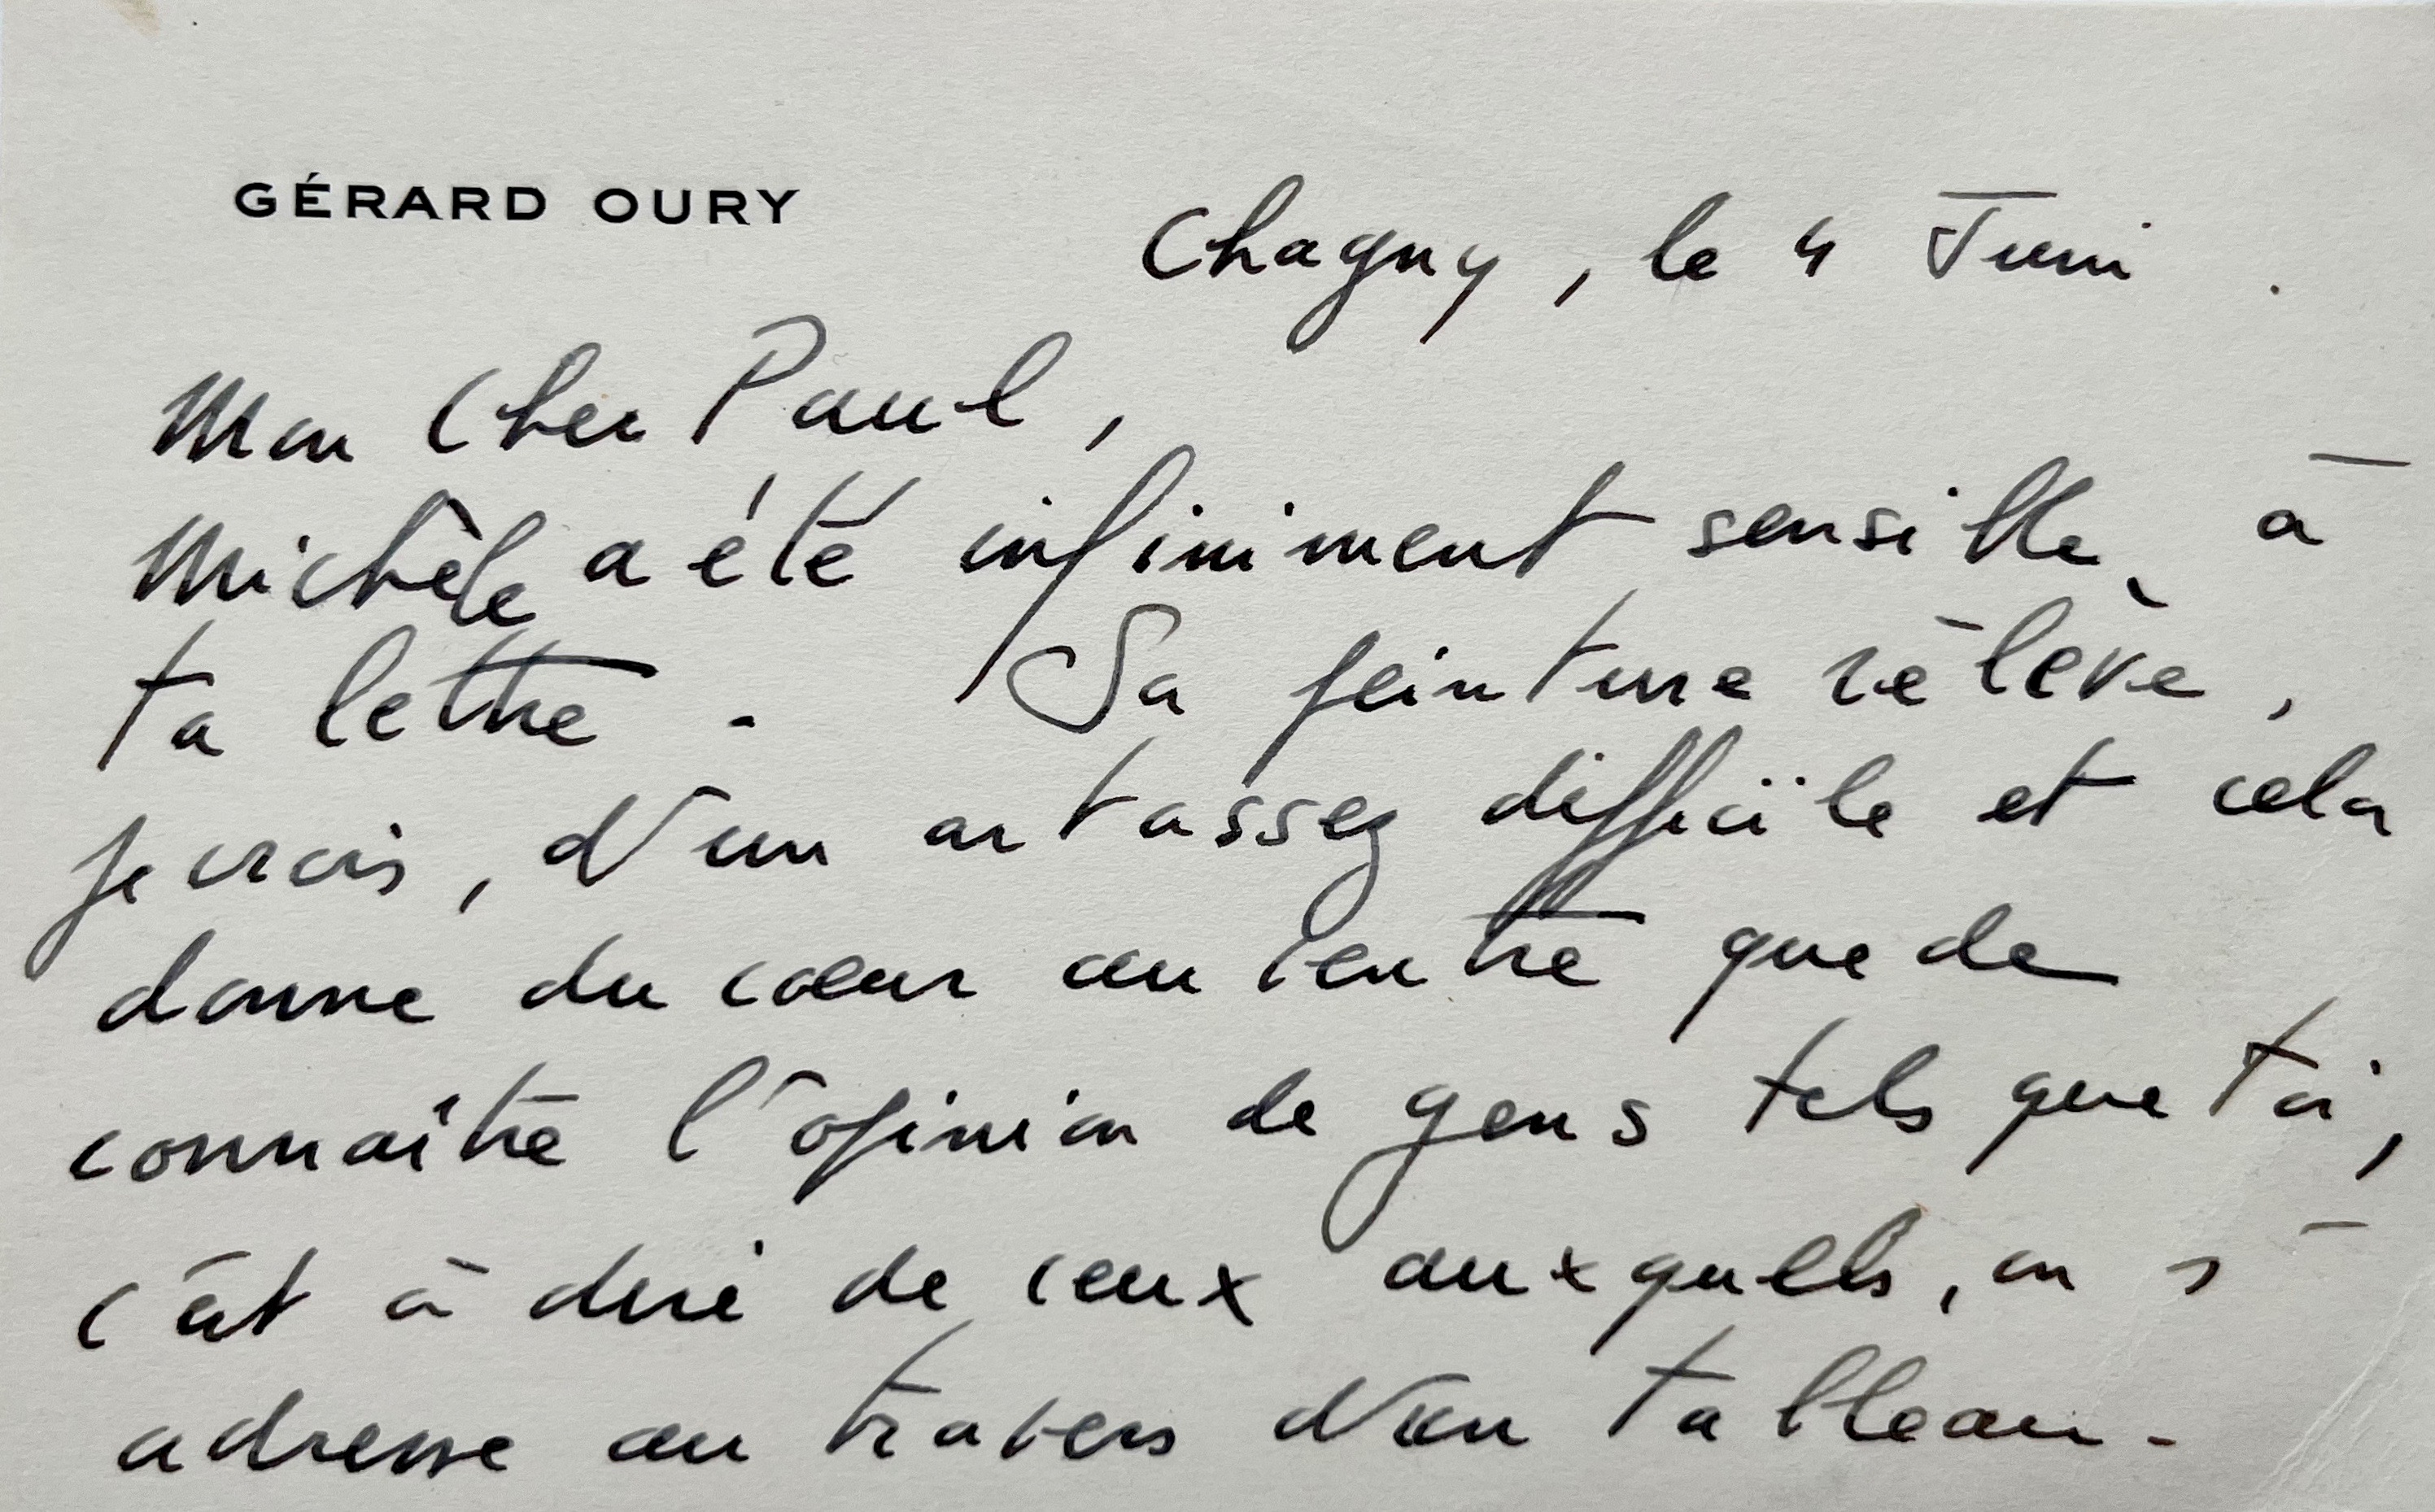 GÉRARD OURY
Chagny, le 4 Juin
Mon Cher Paul,
Michèle a été infiniment sensible, à
ta lettre. Sa peinture rélève,
je crois, d'un art assez difficile et cela
donne du cœur au ventre que de
connaître l'opinion de gens tels que toi,
c'est à dire de ceux auxquels, on s'
adresse au travers d'un tableau.